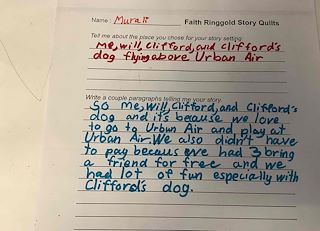 Name: Murali Faith Ringgold Story Quilts
Tell me about the place you chose for your story setting
Me, Will, Clifford, and Clifford's
dog flying above Urban Air
Write a couple paragraphs telling me your story.
So me, Will, Clifford, and Clifford's
dog and it's because we love
to go to Urban Air and play at
Urban Air. We also didn't have
to pay becaus we had 3 bring
a friend for free and we
had lot of fun especially with
Clifford's dog.